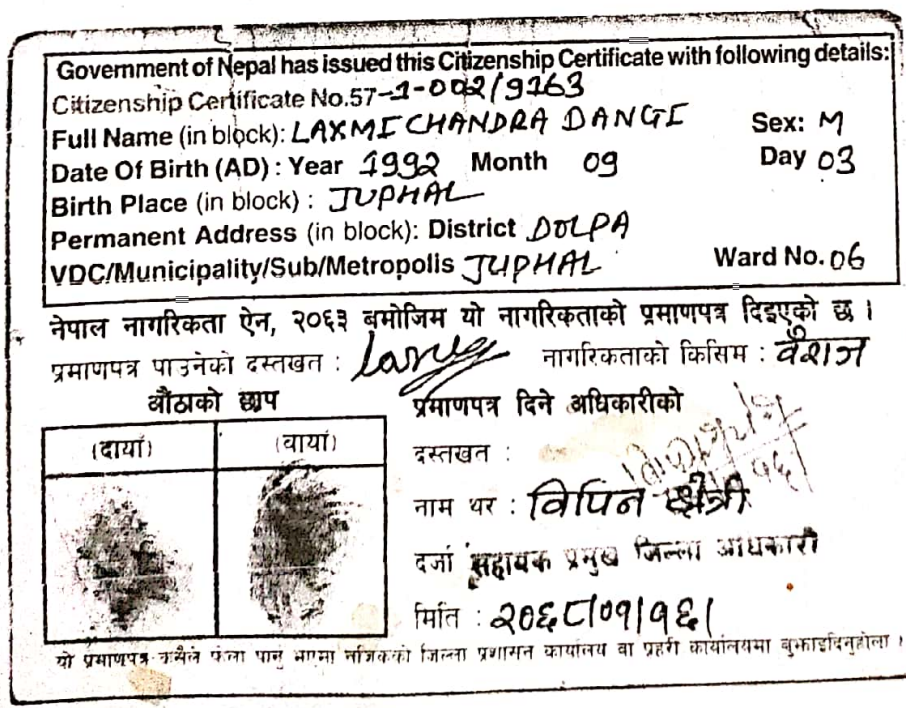 Government of Nepal has issued this Citizenship Certificate with following details:
Citizenship Certificate No.57-1-002/9163
Full Name (in block): LAXMI CHANDRA DANGI Sex: M
Date Of Birth (AD) : Year 1992 Month 09 Day 03
Birth Place (in block) : JUPHAL
Permanent Address (in block): District DOLPA
VDC/Municipality/Sub/Metropolis JUPHAL Ward No. 06
नेपाल नागरिकता ऐन, २०६३ बमोजिम यो नागरिकताको प्रमाणपत्र दिइएको छ ।
प्रमाणपत्र पाउनेको दस्तखत : नागरिकताको किसिम : वंशज
औंठाको छाप प्रमाणपत्र दिने अधिकारीको
(दायां) (वायां) दस्तखत :
नाम थर : विपिन क्षेत्री
दर्जा सहायक प्रमुख जिल्ला अधिकारी
मिति : २०६८/०१/१६/
यो प्रमाणपत्र कसैले फेला पार्नु भएमा नजिकको जिल्ला प्रशासन कार्यालय वा प्रहरी कार्यालयमा बुझाइदिनुहोला ।